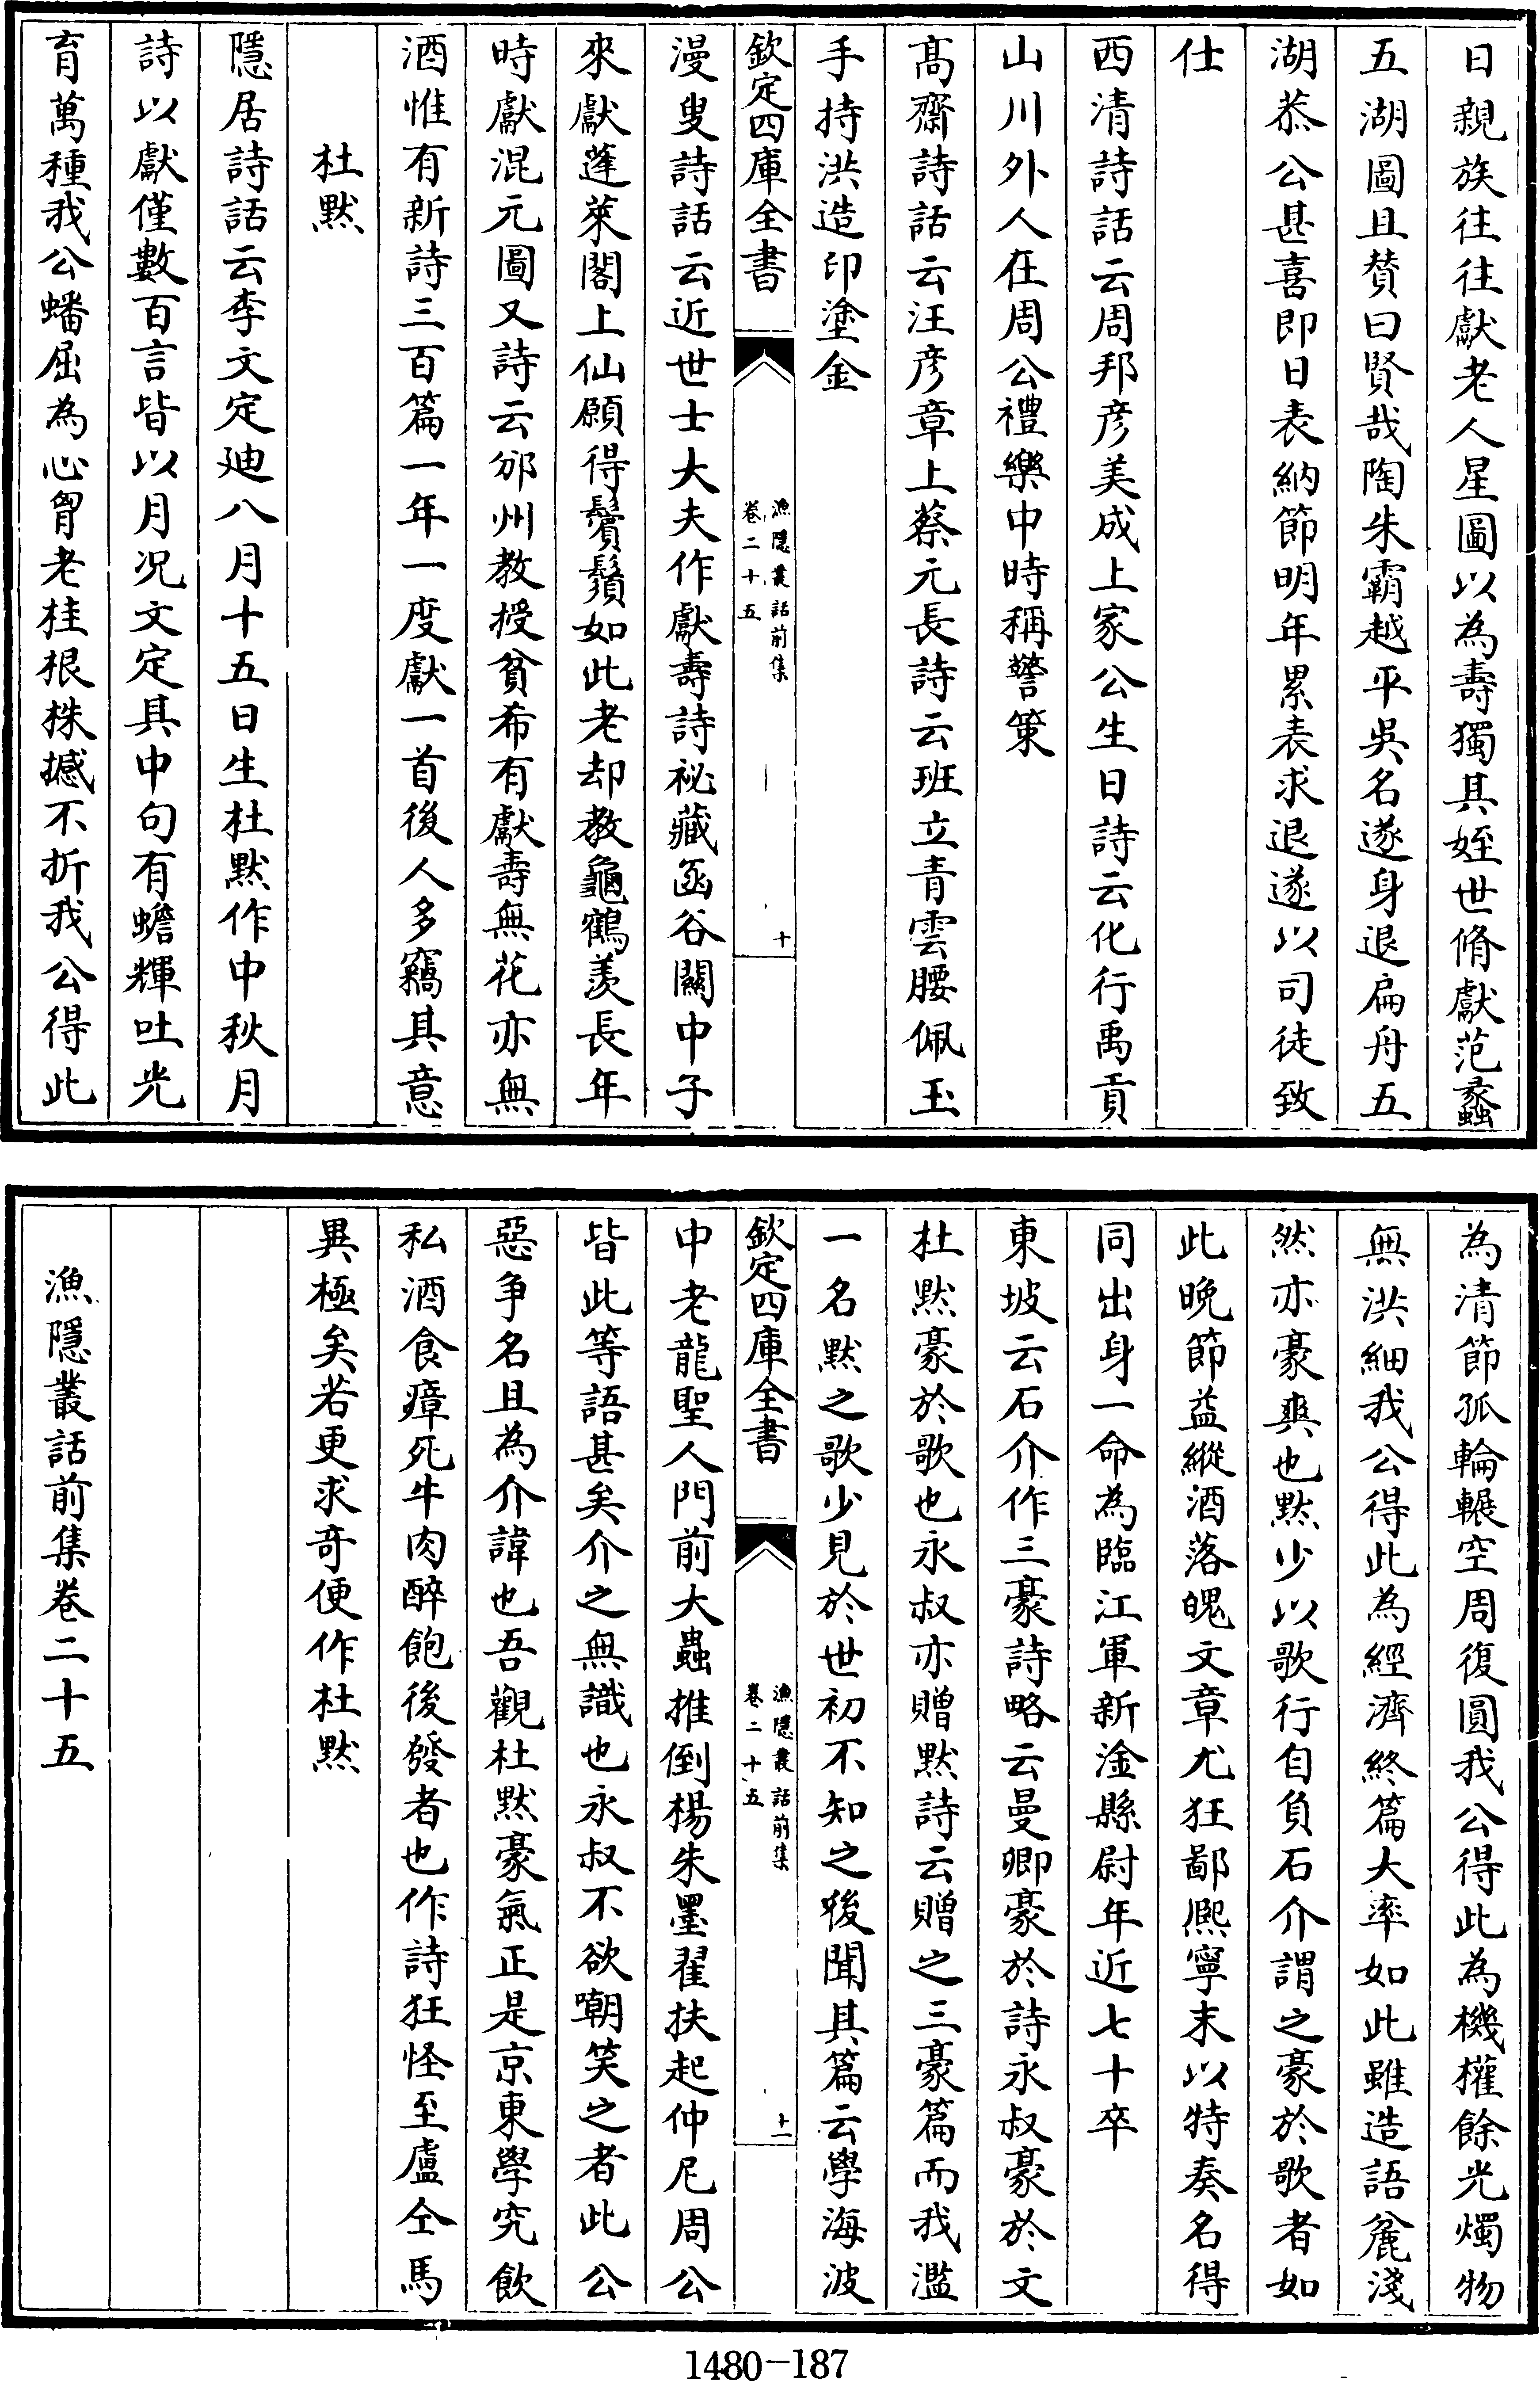 日親族往往獻老人星圖以為壽獨其姪世脩獻范蠡
五湖圖且贊曰賢哉陶朱霸越平吳名遂身退扁舟五
湖恭公甚喜即日表納節明年累表求退遂以司徒致
仕
西清詩話云周邦彦美成上家公生日詩云化行禹貢
山川外人在周公禮樂中時稱警策
髙齋詩話云汪彦章上蔡元長詩云班立青雲腰佩玉
手持洪造印塗金
欽定四庫全書
漁隱叢話前集
卷二十五
十
漫叟詩話云近世士大夫作獻壽詩祕藏函谷闗中子
來獻蓬萊閣上仙願得鬢鬚如此老却教龜鶴羨長年
時獻混元圖又詩云邠州教授貧希有獻壽無花亦無
酒惟有新詩三百篇一年一度獻一首後人多竊其意
杜黙
隱居詩話云李文定廸八月十五日生杜黙作中秋月
詩以獻僅數百言皆以月况文定其中句有蟾輝吐光
育萬種我公蟠屈為心胷老桂根株撼不折我公得此
為清節孤輪輾空周復圓我公得此為機權餘光燭物
無洪細我公得此為經濟終篇大率如此雖造語麄淺
然亦豪爽也黙少以歌行自負石介謂之豪於歌者如
此晚節益縱酒落魄文章尤狂鄙熈寧末以特奏名得
同出身一命為臨江軍新淦縣尉年近七十卒
東坡云石介作三豪詩略云曼卿豪於詩永叔豪於文
杜黙豪於歌也永叔亦贈黙詩云贈之三豪篇而我濫
一名黙之歌少見於世初不知之後聞其篇云學海波
欽定四庫全書
漁隱叢話前集
卷二十五
十一
中老龍聖人門前大蟲推倒楊朱墨翟扶起仲尼周公
皆此等語甚矣介之無識也永叔不欲嘲笑之者此公
惡争名且為介諱也吾觀杜黙豪氣正是京東學究飲
私酒食瘴死牛肉醉飽後發者也作詩狂怪至盧仝馬
異極矣若更求奇便作杜黙
漁隱叢話前集卷二十五
1480-187